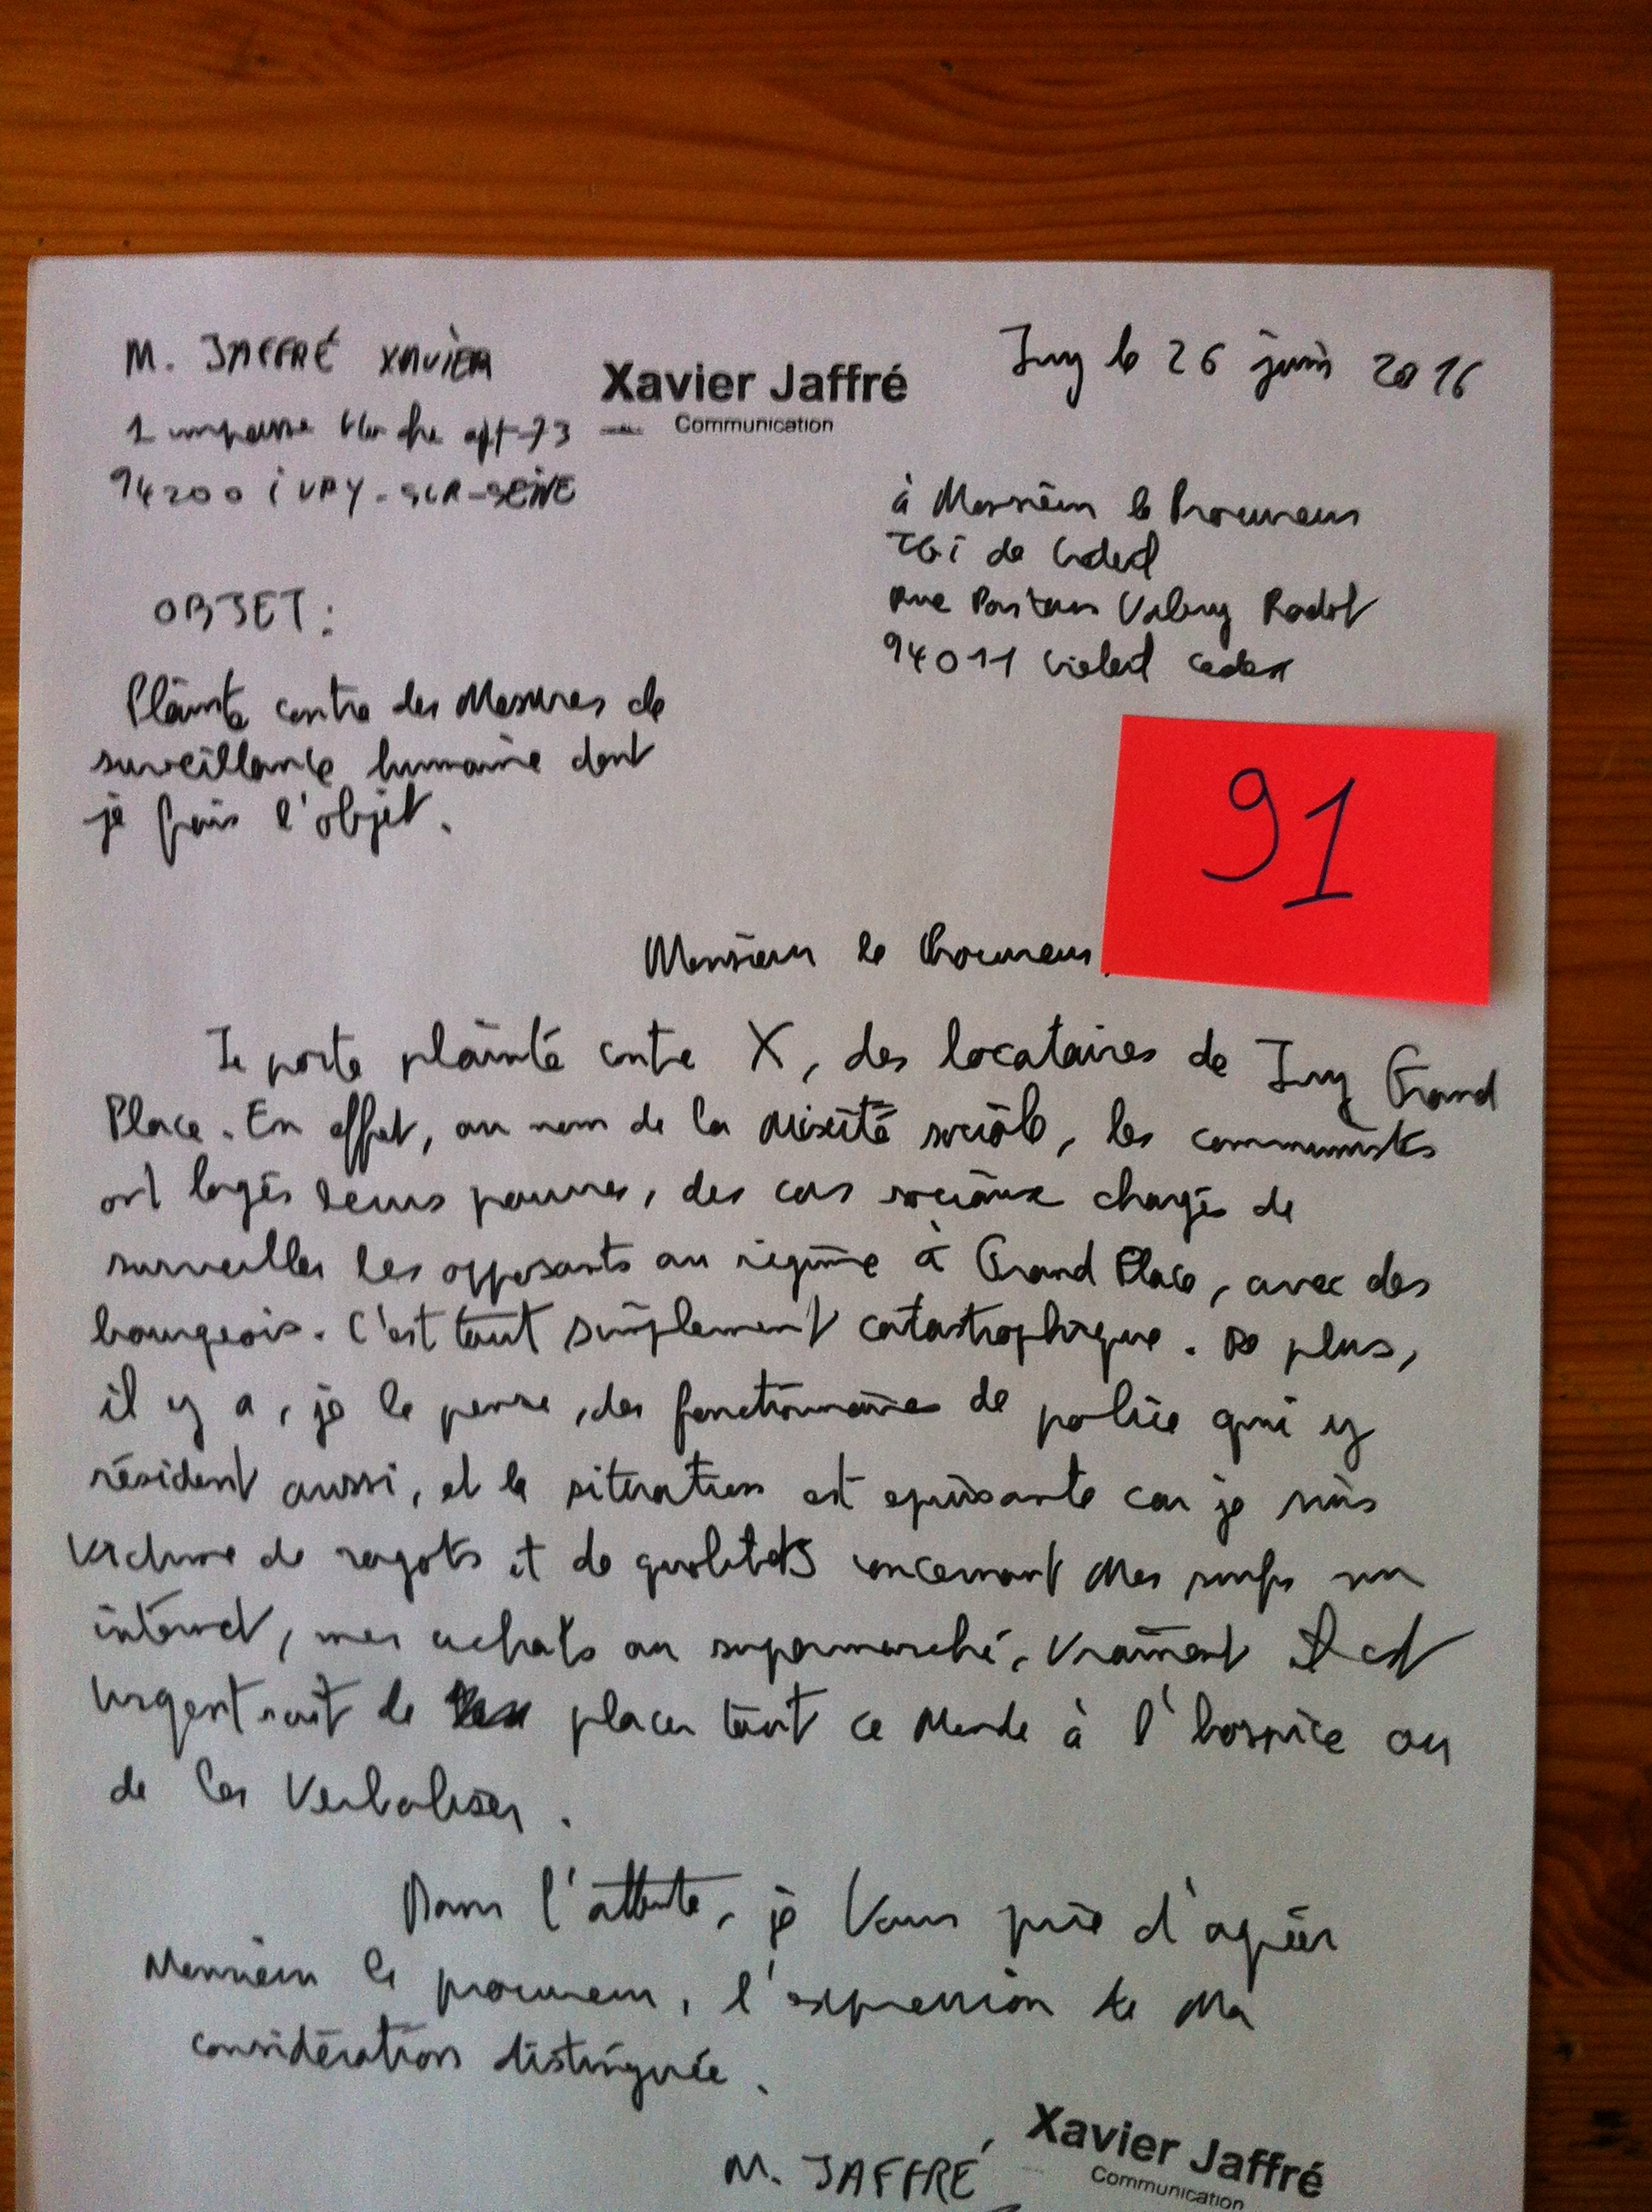 M. JAFFRÉ XAVIER
Xavier Jaffré
Communication
Ivry le 26 juin 2016
1 impasse apt 73
94200 IVRY-SUR-SEINE
à Monsieur le Procureur
TGi de Créteil
rue Pasteur Valery Radot
94011 Créteil cedex
OBJET:
Plainte contre des Mesures de
surveillance humaine dont
je fais l'objet.
91
Monsieur le Procureur,
Je porte plainte contre X, des locataires de Ivry Grand
Place. En effet, au nom de la Mixité sociale, les communistes
ont logés leurs pauvres, des cas sociaux chargés de
surveiller les opposants au régime à Grand Place, avec des
bourgeois. C'est tout simplement catastrophique. De plus,
il y a, je le pense, des fonctionnaires de police qui y
résident aussi, et la situation est épuisante car je suis
victime de ragots et de quolibets concernant Mes surfs sur
internet, mes achats au supermarché, vraiment il est
urgent soit de placer tout ce Monde à l'hospice ou
de les Verbaliser.
Dans l'attente, je Vous prie d'agréer
Monsieur le procureur, l'expression de Ma
considération distinguée.
M. JAFFRÉ
Xavier Jaffré
Communication